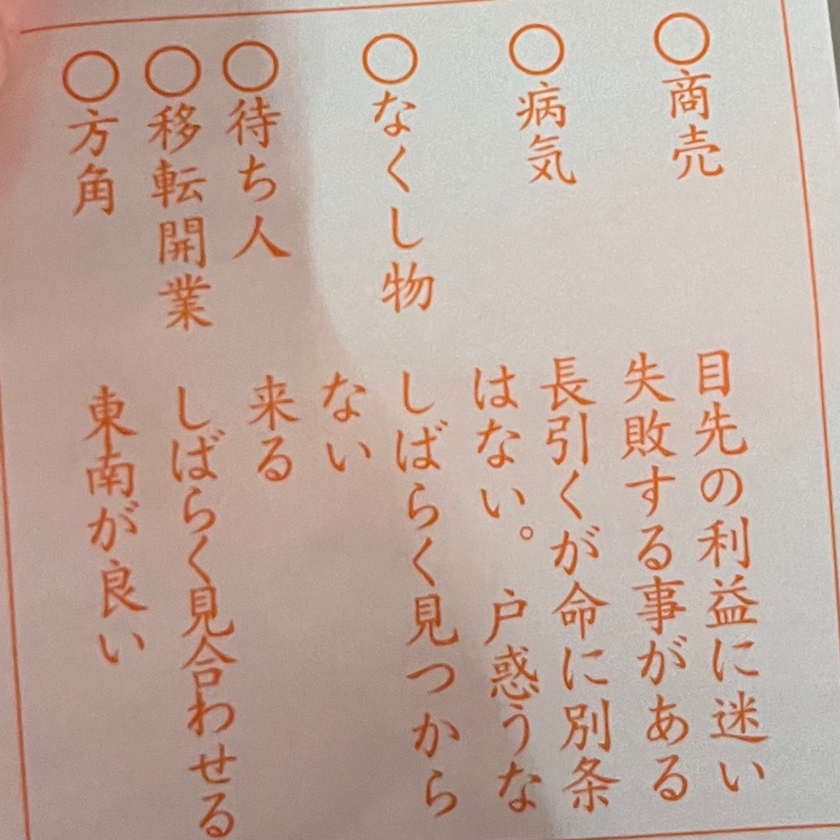 ○商売 目先の利益に迷い
失敗する事がある
○病気 長引くが命に別条
はない。戸惑うな
○なくし物 しばらく見つから
ない
○待ち人 来る
○移転開業 しばらく見合わせる
○方角 東南が良い